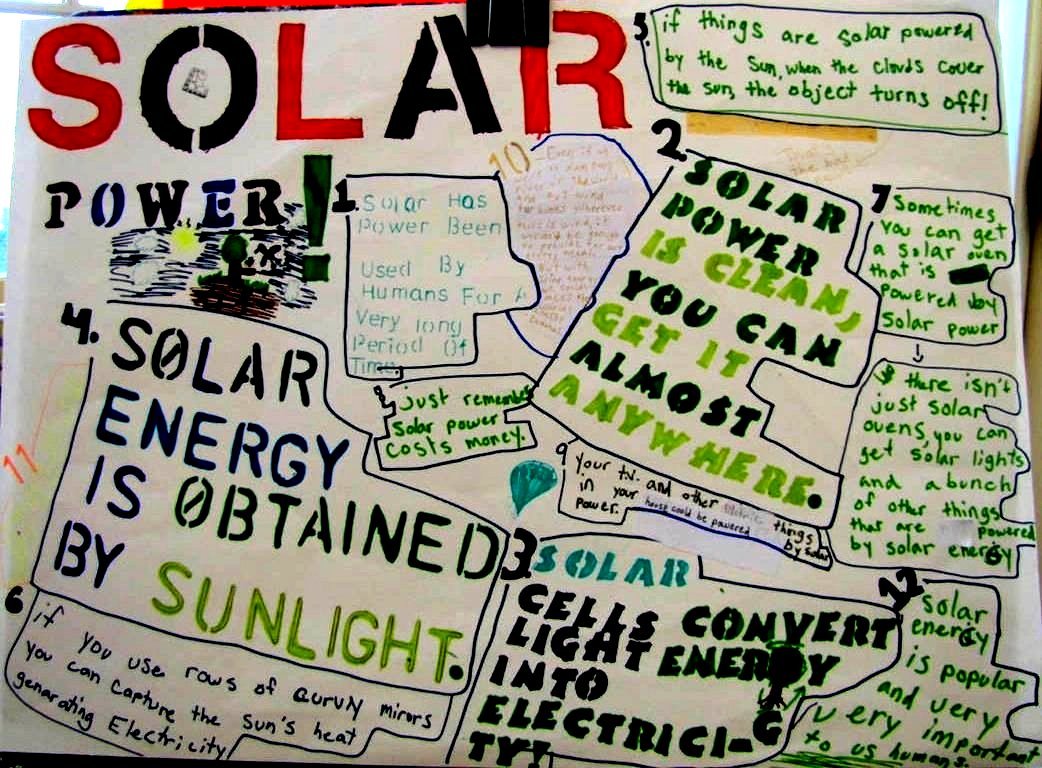 SOLAR
POWER!
1.
Solar Has
Power Been
Used By
Humans For A
Very long
Period Of
Time.
2.
SOLAR
POWER
IS CLEAN,
YOU CAN
GET IT
ALMOST
ANYWHERE.
3.
SOLAR
CELLS CONVERT
LIGHT ENERGY
INTO
ELECTRICI-
TY!
G
4.
SOLAR
ENERGY
IS OBTAINED
BY
SUNLIGHT.
5.
if things are solar powered
by the sun, when the clouds cover
the sun, the object turns off!
6
if you use rows of curvy mirors
you can capture the sun's heat
genarating Electricity
7
Sometimes,
you can get
a solar oven
that is
powered by
Solar power
8
there isn't
just solar
ovens, you can
get solar lights
and a bunch
of other things
that are powered
by solar energy
just remember
solar power
costs money.
9
your t.v. and other things
in your house could be powered
power. by solar
10
Even if
11
12
solar
energy
is popular
and very
very important
to us humans.